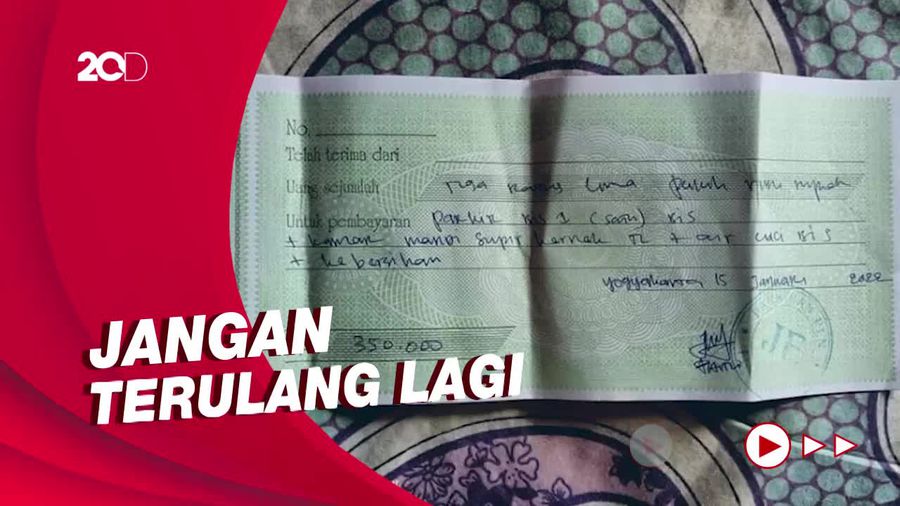 20D
No.
Telah terima dari
Uang sejumlah Tiga Ratus Lima puluh ribu rupiah
Untuk pembayaran parkir bis 1 (satu) bis
+ kamar mandi supir kernek TL + air cuci bis
+ kebersihan
Yogyakarta 15 Januari 2022
350.000
JANGAN
TERULANG LAGI